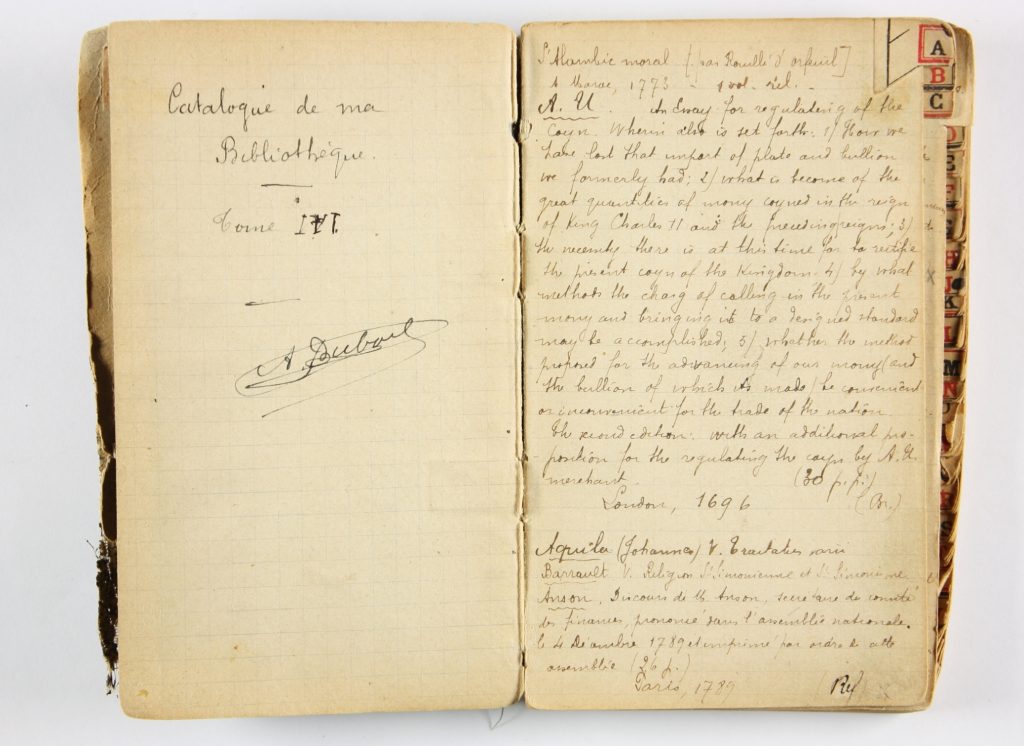 Catalogue de ma
Bibliothèque.
Tome III
A. Dubois
L'Alambic moral [par Rouillé d'orfeuil]
A Maroc, 1773 - 1 vol. rel. -
A. U. An Essay for regulating of the
Coyn. Wherein also is set forth: 1) How we
have lost that import of plate and bullion
we formerly had; 2) what is become of the
great quantities of mony coyned in the reign
of King Charles II and the preceding reigns; 3)
the necessity there is at this time for to rectifie
the present coyn of the Kingdom. 4) by what
methods the charg of calling in the present
mony and bringing it to a designed standard
may be accomplished; 5) whether the method
proposed for the advancing of our mony (and
the bullion of which its made) be convenient
or inconvenient for the trade of the nation.
The second edition: with an additional pro-
position for the regulating the coyn by A. U.
merchant. (30 p.p.)
London, 1696 (Br.)
Aquila (Johannes) V. Tractatus varii
Barrault V. Religion St Simonienne et St Simonisme
Anson, Discours de M. Anson, secrétaire du comité
des finances, prononcé dans l'assemblée nationale
le 4 Décembre 1789 et imprimé par ordre de cette
assemblée (26 p.)
Paris, 1789 (Rel)
A
B
C
D
E
F
J
K
M
N